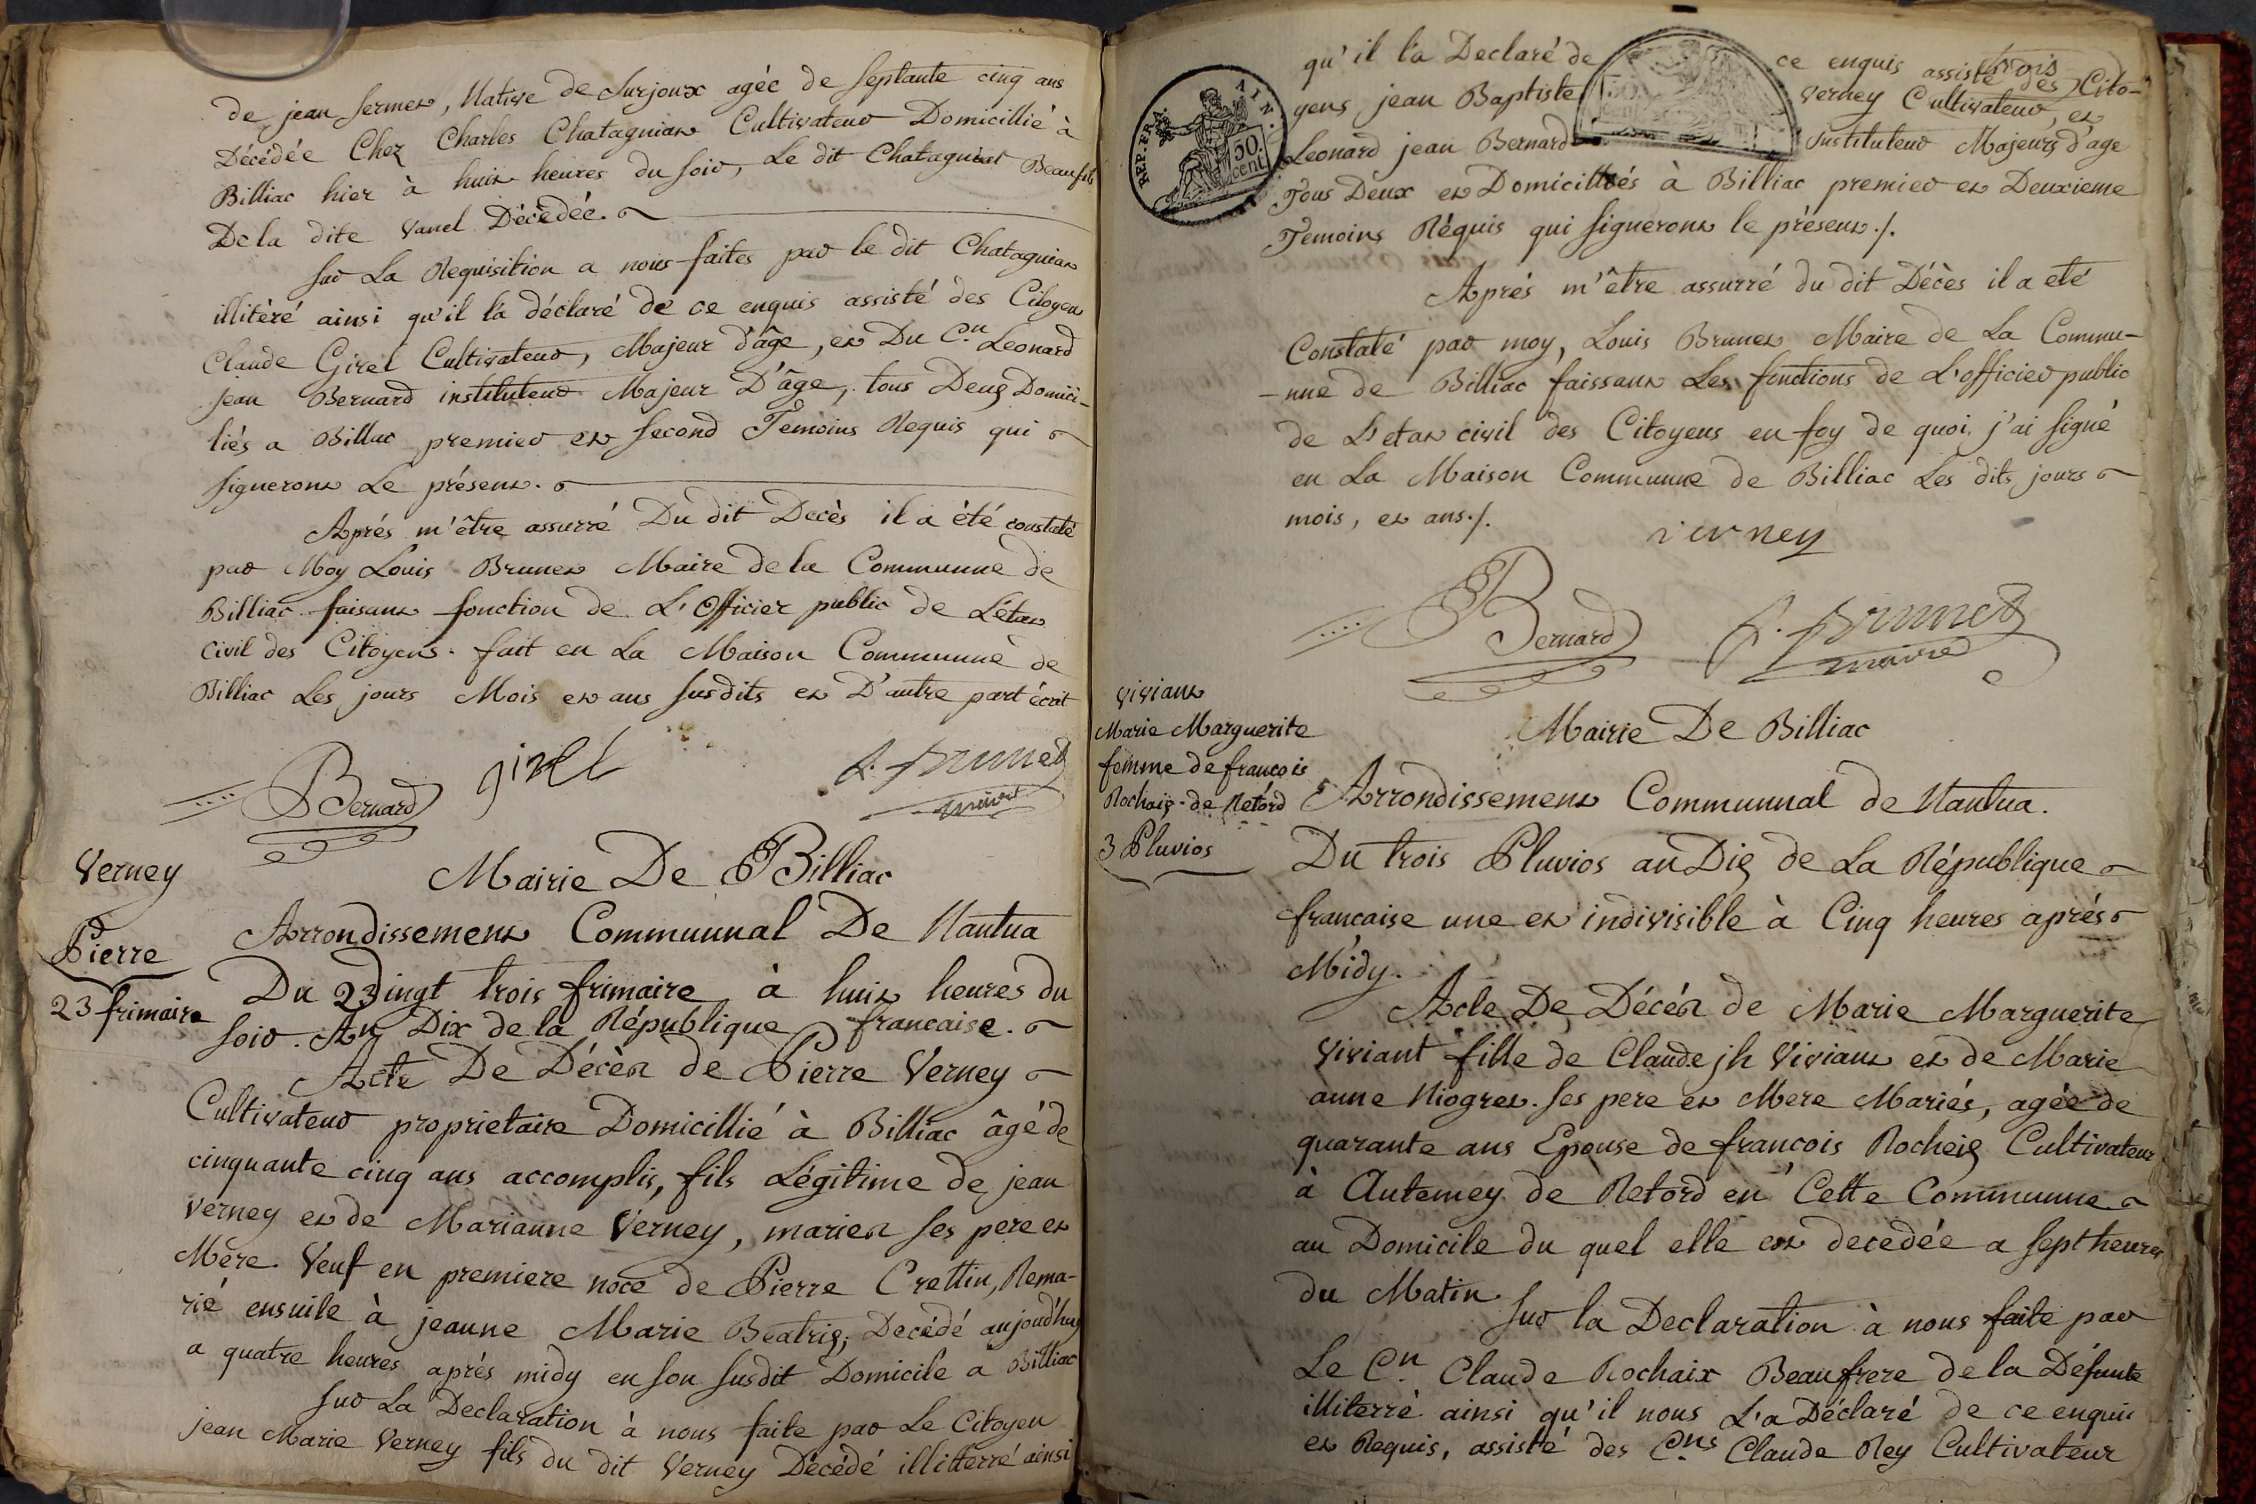 de jean Sermet, Native de Surjoux agée de Septante cinq ans
Décédée Chez Charles Chatagniat Cultivateur Domicillié à
Billiac hier à huit heures du Soir, Le dit Chatagniat Beaufils
De la dite Vanel Décédée.
Sur La Requisition a nous faites par le dit Chatagniat
illitèré ainsi qu'il l'a déclaré de ce enquis assisté des Citoyen
Claude Girel Cultivateur, Majeur d'âge, et Du Cn. Leonard
jean Bernard instituteur Majeur D'âge, tous Deux Domici-
liés a Billiac premier et second Temoins Requis qui
signeront Le présent.
Aprés m'être assurré Du dit Decès il a été constaté
par Moy Louis Brunet Maire de la Communne de
Billiac faisant fonction de L'Officier public de L'état
civil des Citoyens. fait en La Maison Communne de
Billiac Les jours Mois et ans susdits et D'autre part écrit
Bernard girel L. Brunet
maire
Verney
Pierre
23 frimaire
Mairie De Billiac
Arrondissement Communnal De Nantua
Du 23 Vingt trois frimaire à huit heures du
soir. An Dix de la République francaise.
Acte De Décès de Pierre Verney
Cultivateur proprietaire Domicillié à Billiac âgé de
cinquante cinq ans accomplis, fils Légitime de jean
Verney et de Marianne Verney, mariés ses pere et
Mère. Veuf en premiere noce de Pierre Crettin, Rema-
rié ensuite à jeanne Marie Beatrix; Decédé aujourd'huy
a quatre heures aprés midy en son susdit Domicile a Billiac
Sur La Declaration à nous faite par Le Citoyen
jean Marie Verney fils du dit Verney Décédé illitterré ainsi
REP. FRA. AIN.
50. cent.
qu'il l'a Declaré de ce enquis assisté des trois Cito-
yens jean Baptiste Verney Cultivateur, et
Leonard jean Bernard Instituteur Majeurs d'age
Tous Deux et Domicilliés à Billiac premier et Deuxieme
Temoins Réquis qui signeront le présent ./.
Aprés m'être assurré du dit Décès il a eté
Constaté par moy, Louis Brunet Maire de La Commu-
-nne de Billiac faissant Les fonctions de L'officier public
de L'etat civil des Citoyens en foy de quoi j'ai signé
en La Maison Communne de Billiac Les dits jours
mois, et ans ./.
verney
Bernard L. Brunet
maire
Viviant
Marie Marguerite
femme de francois
Rochaix de Retord
3 Pluvios
Mairie De Billiac
Arrondissement Communnal de Nantua.
Du trois Pluvios an Dix de La République
francaise une et indivisible à Cinq heures aprés
Midy.
Acte De Décès de Marie Marguerite
Viviant fille de Claude jh Viviant et de Marie
anne Niogret. ses pere et Mere Mariés, agée de
quarante ans Epouse de francois Rocheix Cultivateur
à Autemey de Retord en Cette Communne
au Domicile du quel elle est decedée a sept heures
du Matin
Sur la Declaration à nous faite par
Le Cn. Claude Rochaix Beaufrere de la Défunte
illiterré ainsi qu'il nous L'a Déclaré de ce enquis
et Requis, assisté des Cns. Claude Rey Cultivateur